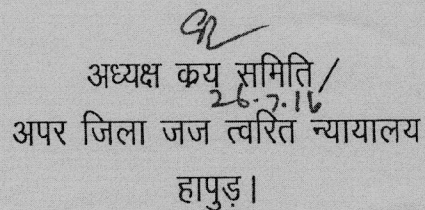 अध्यक्ष क्रय समिति/
26.7.16
अपर जिला जज त्वरित न्यायालय
हापुड़।